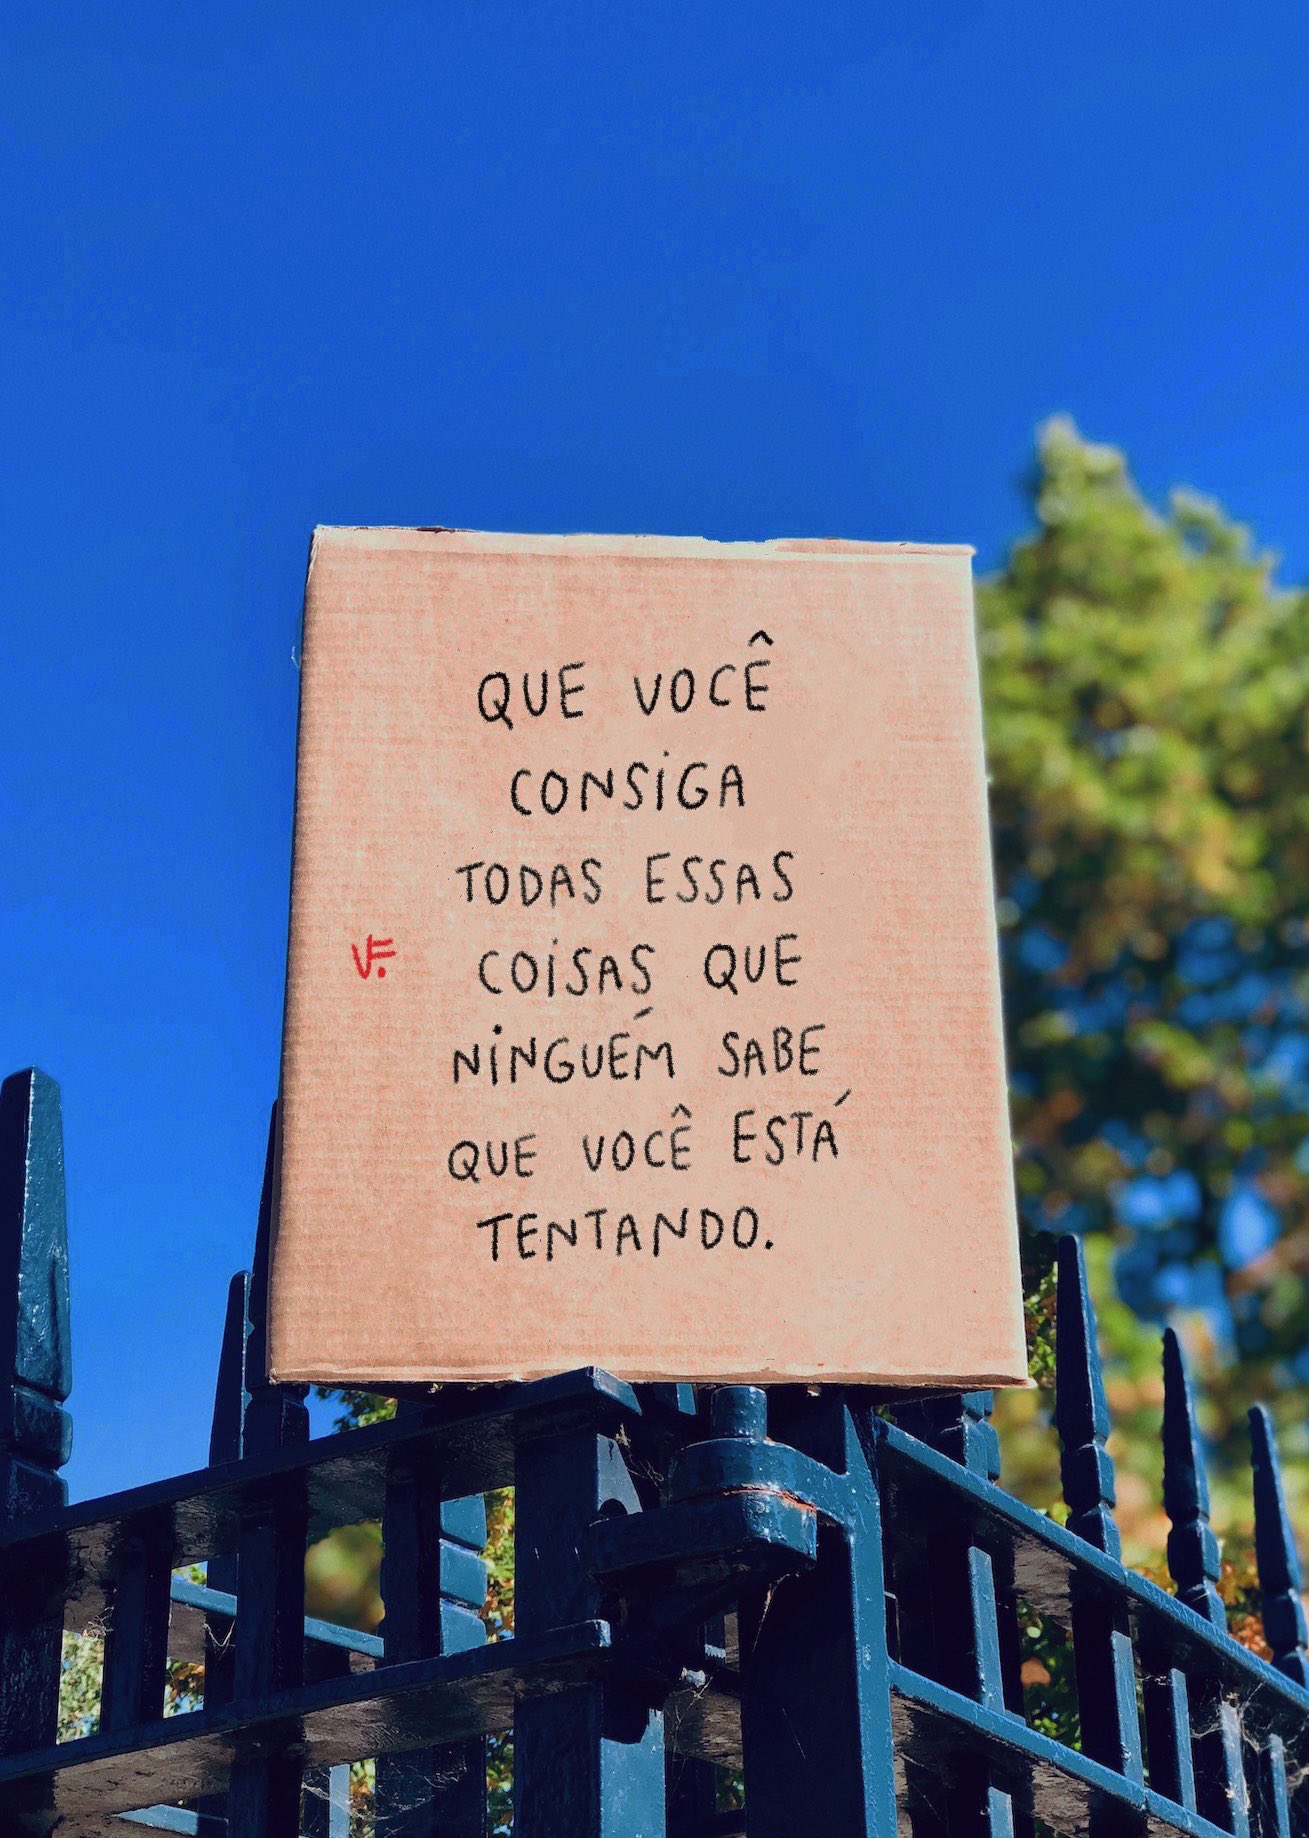 QUE VOCÊ
CONSIGA
TODAS ESSAS
COISAS QUE
NINGUÉM SABE
QUE VOCÊ ESTÁ
TENTANDO.
VF.